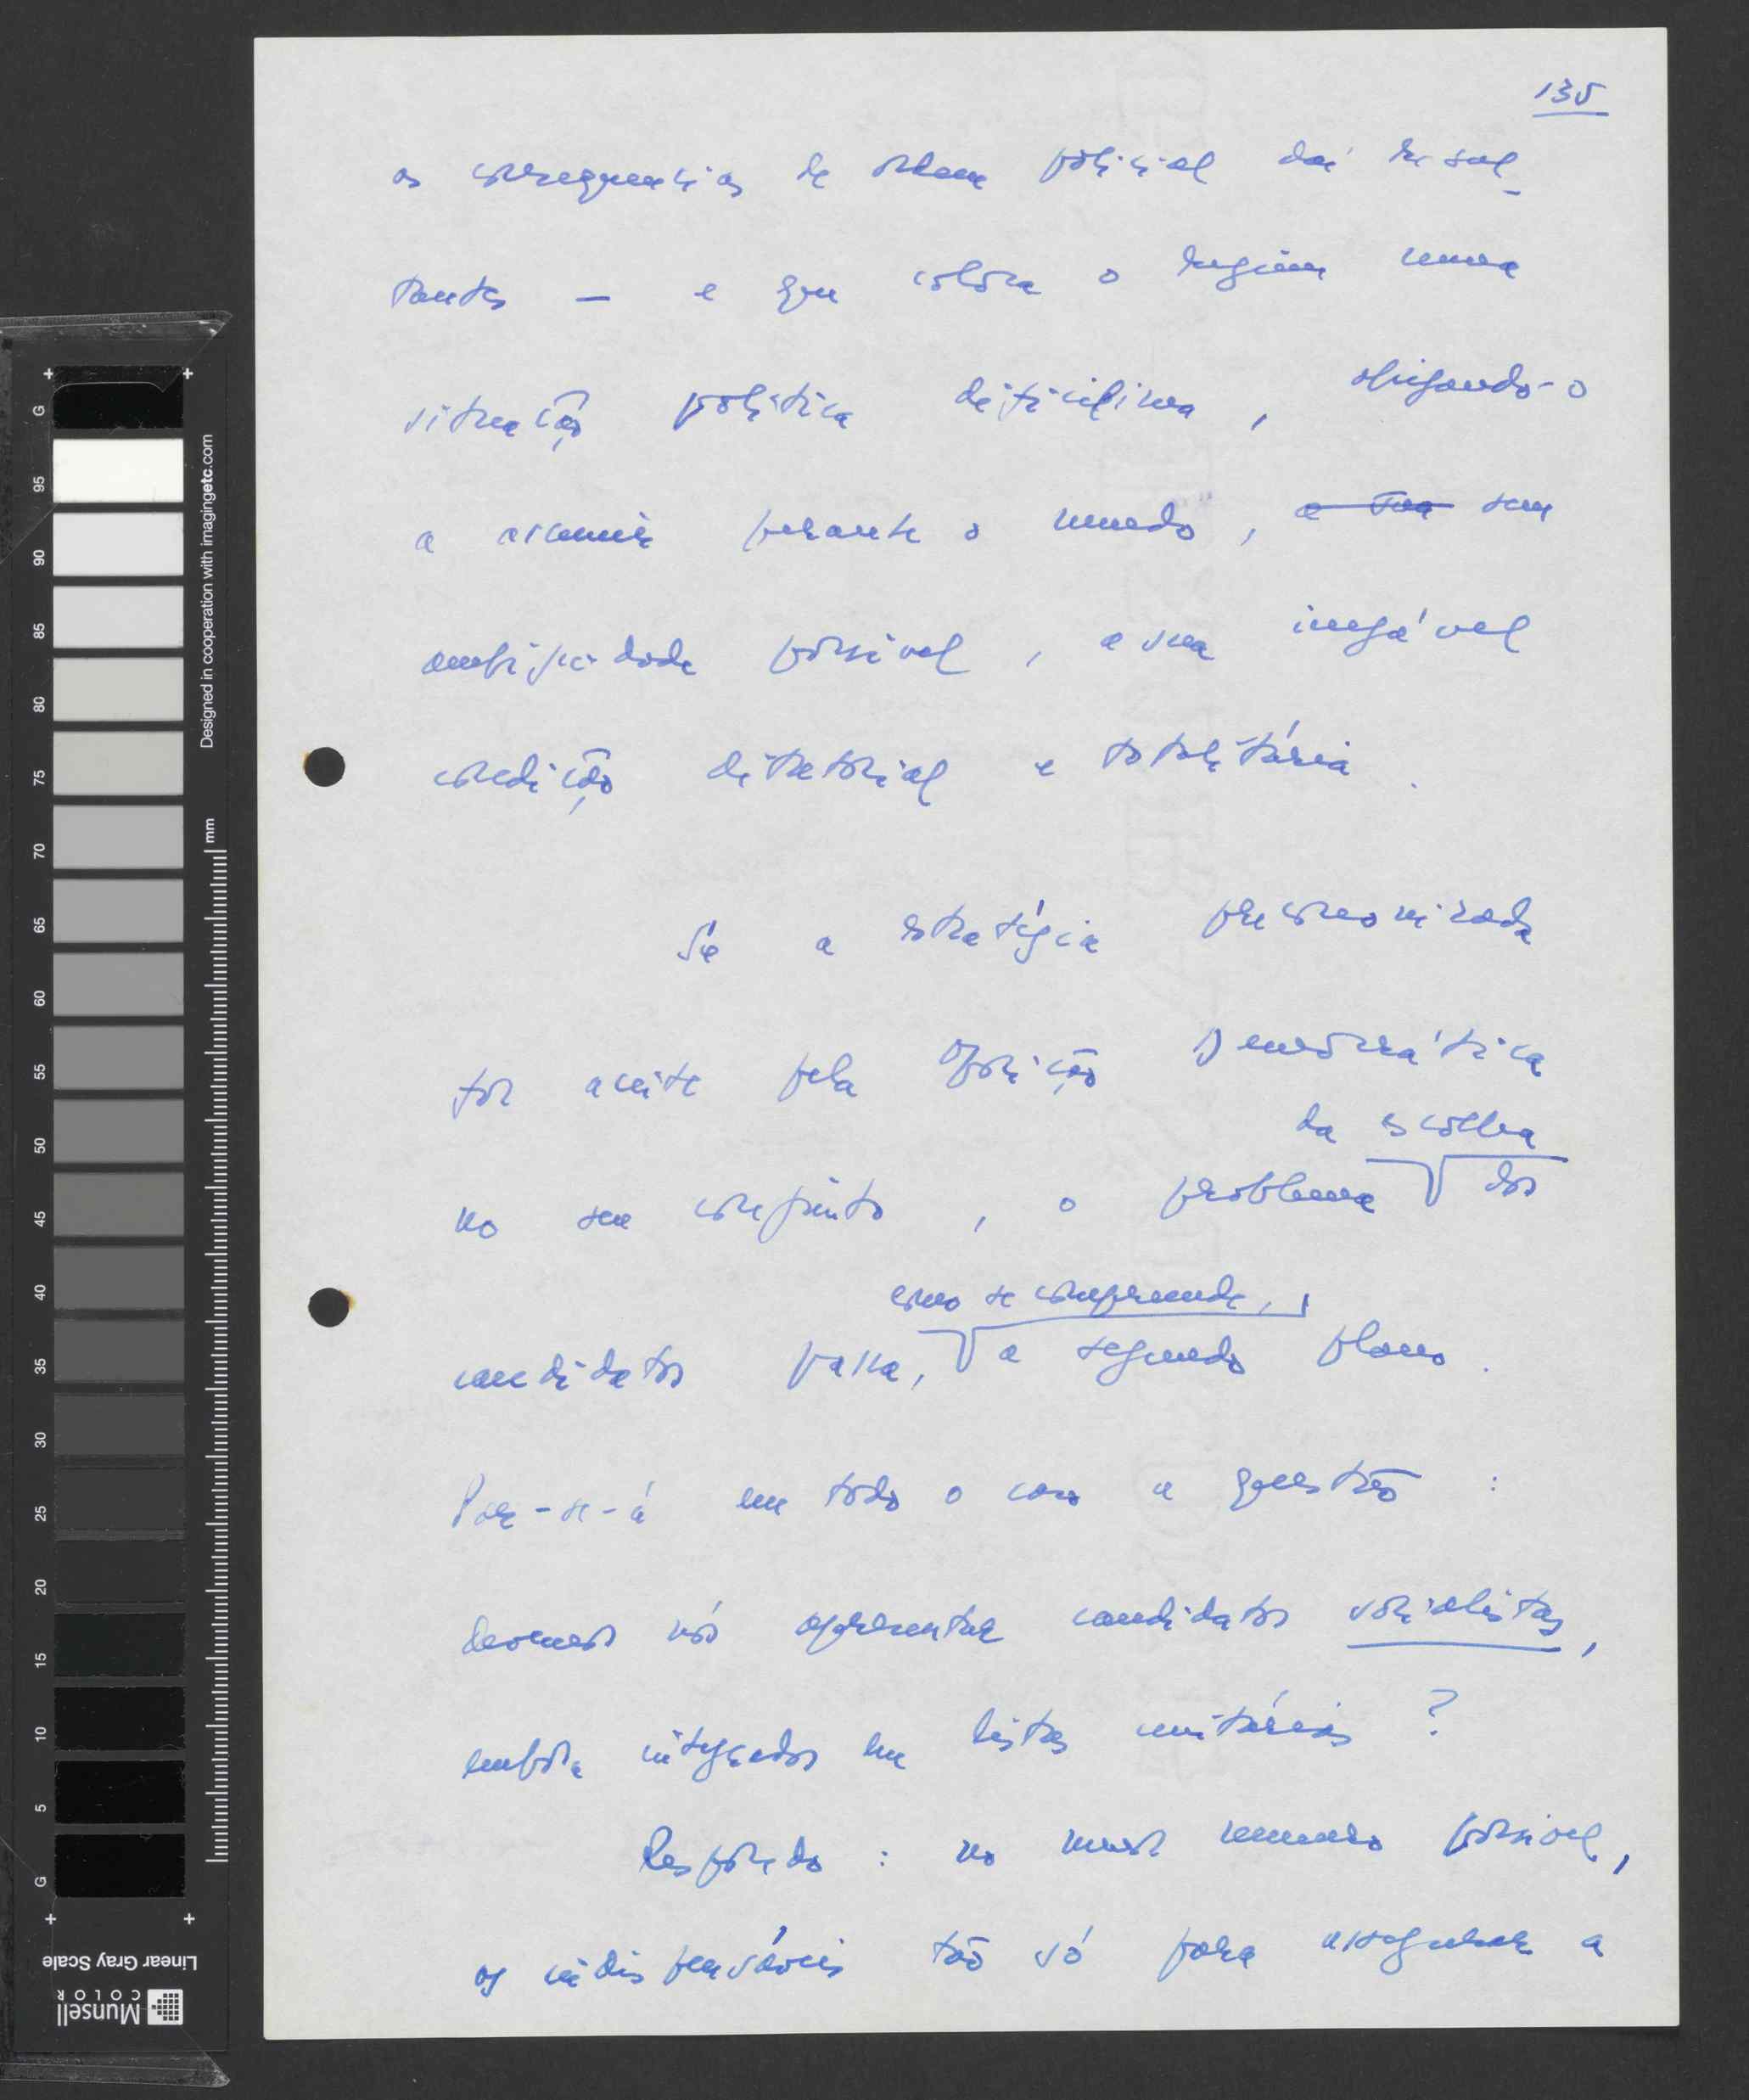 135
as consequencias de ordem policial daí resul-
tantes — e que coloca o regime numa
situação politica dificilima, obrigando-o
a assumir perante o mundo, a sua sem
ambiguidade possivel, a sua inegável
condição ditatorial e totalitária.
Se a estratégia preconizada
for aceite pela Oposição Democrática
da escolha
no seu conjunto, o problema dos
como se compreende,
candidatos passa, a segundo plano.
Por-se-á em todo o caso a questão:
devemos nós apresentar candidatos socialistas,
embora integrados em listas unitárias?
Respondo: no menor numero possivel,
os indispensáveis tão só para assegurar a
G 95 90 85 80 75 70 65 60 55 50 45 40 35 30 25 20 15 10 5 G
Designed in cooperation with imagingetc.com
mm
Linear Gray Scale
Munsell
COLOR